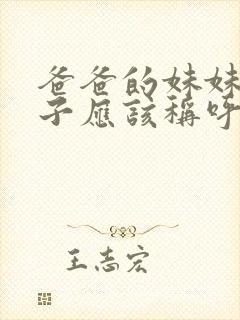 爸爸的妹妹
子應該稱呼
王志宏